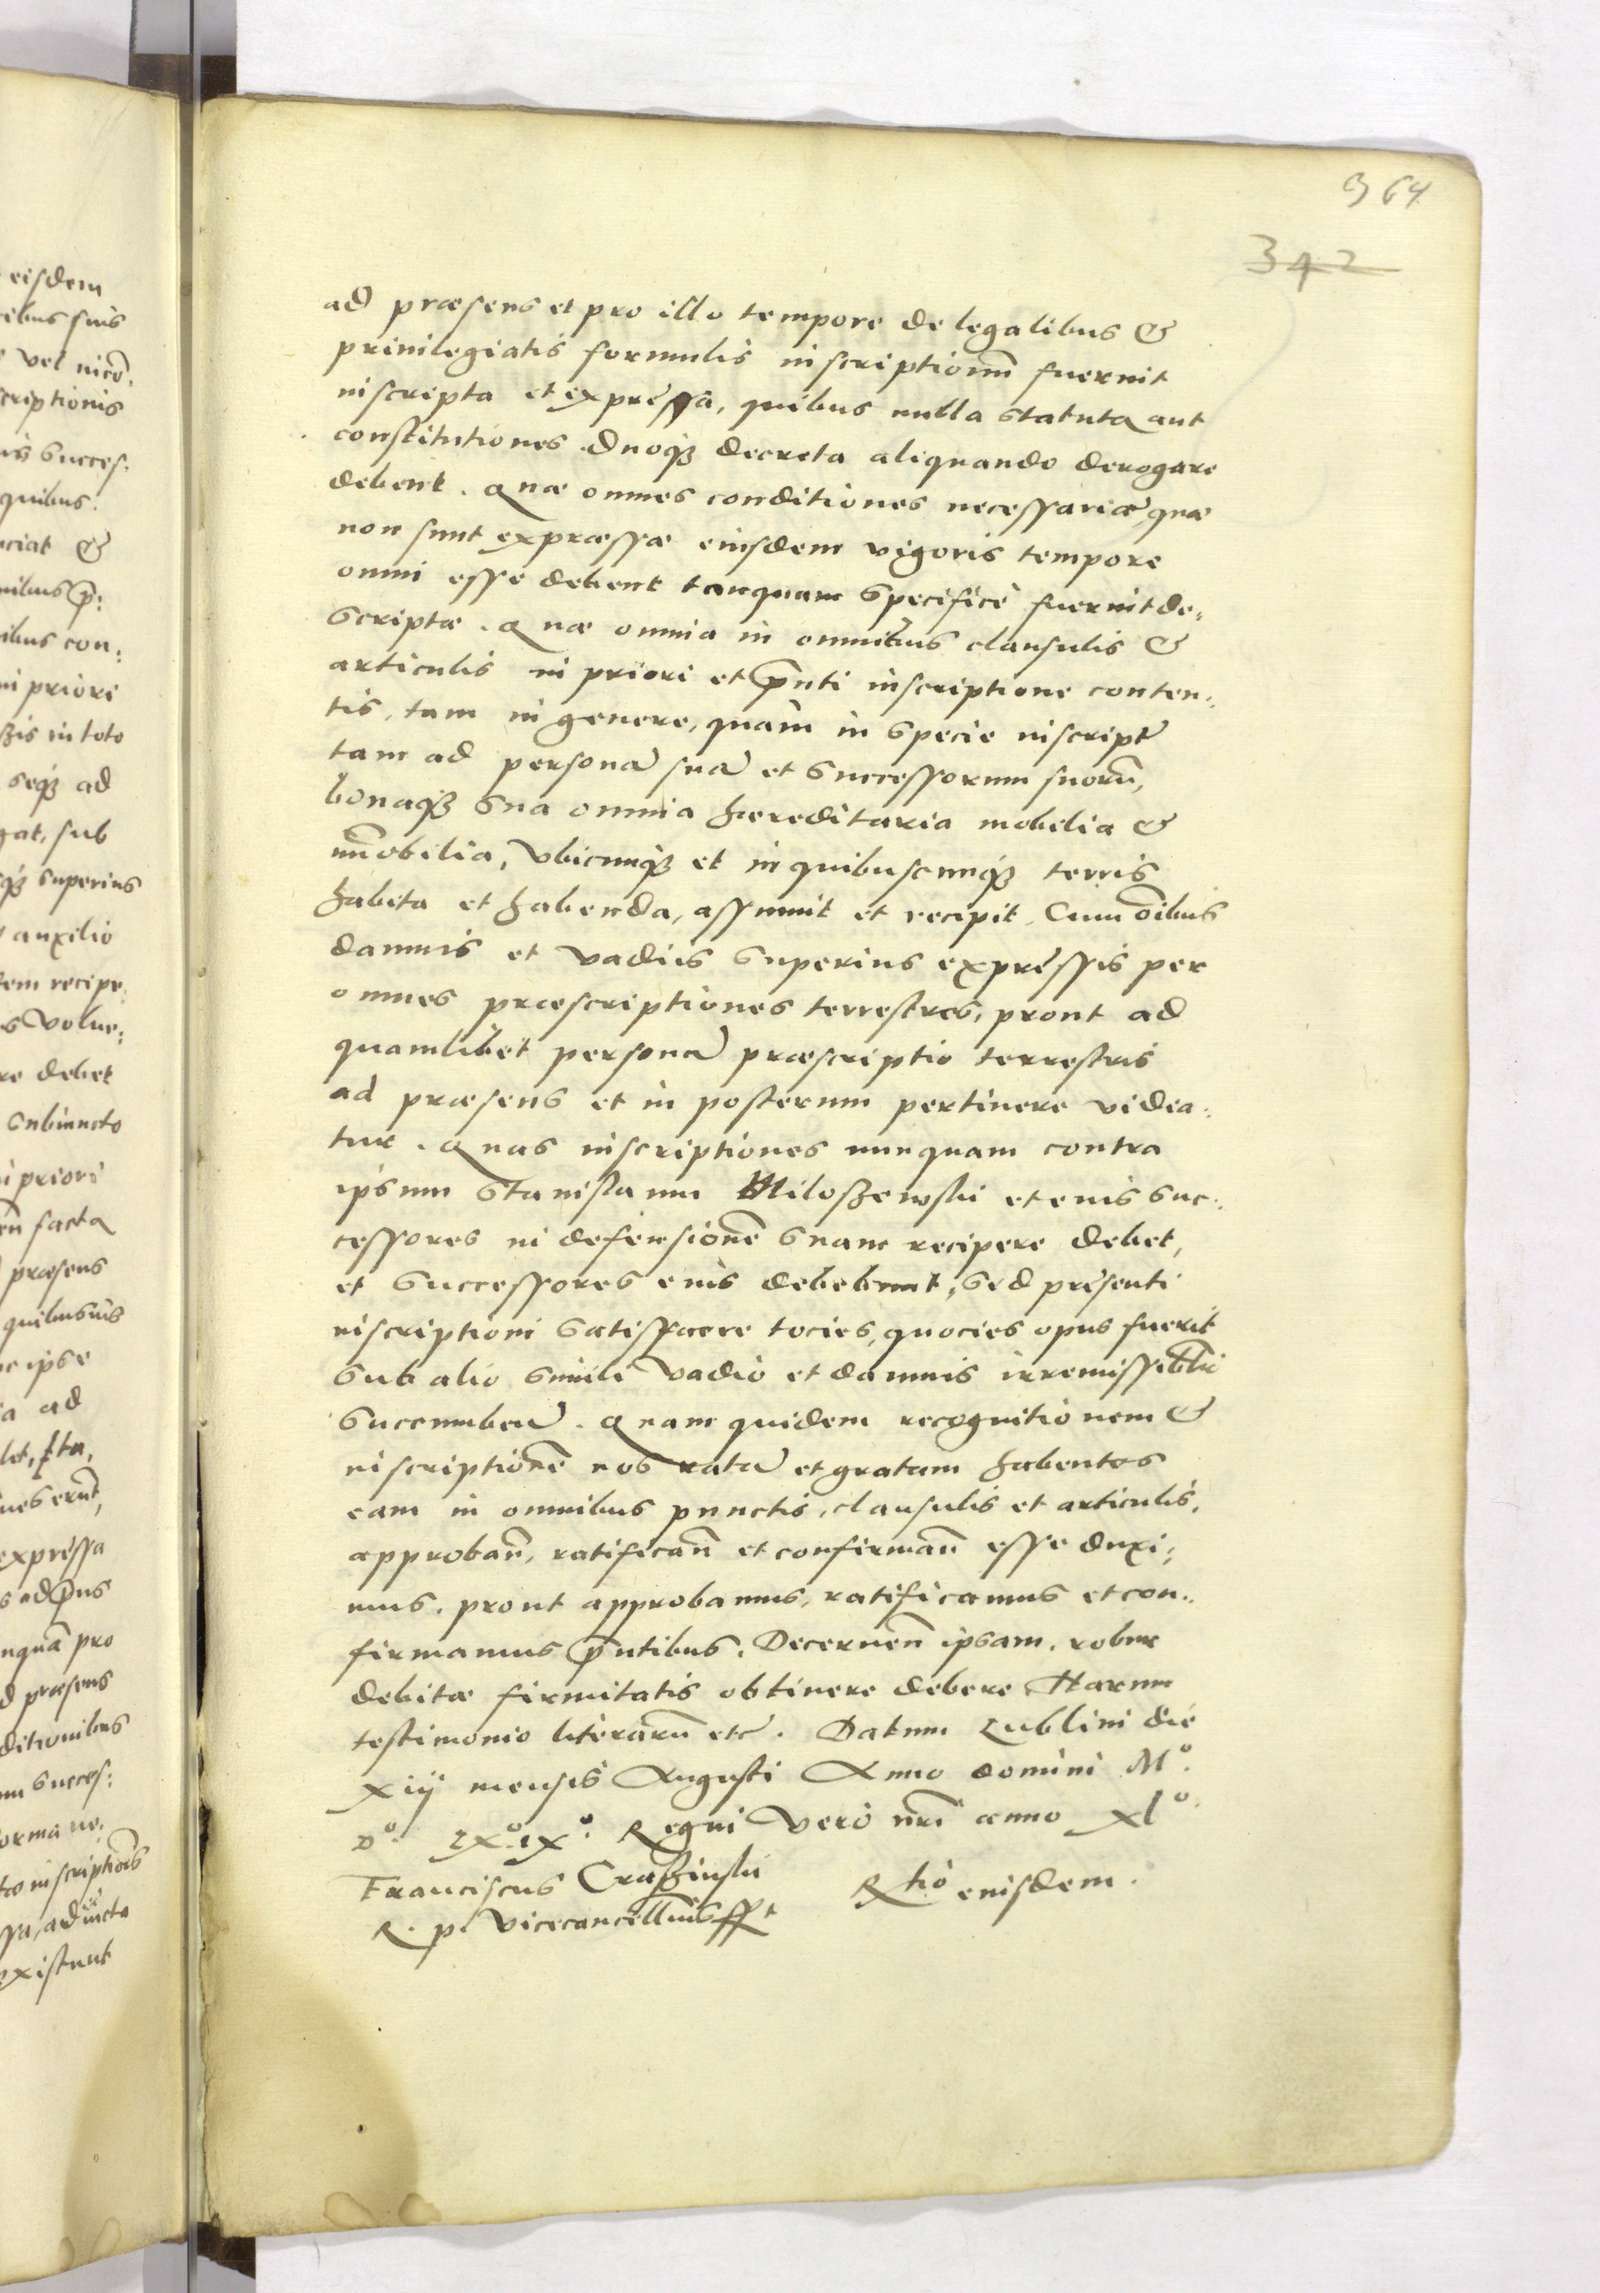 364
342
ad præsens et pro illo tempore de legalibus &
priuilegiatis formulis inscriptionũ fuerint
inscripta et expressa, quibus nulla statuta aut
constitutiones duoqꝫ decreta aliquando derogare
debent. Quæ omnes conditiones necessariæ, quæ
non sunt expræssæ eiusdem vigoris tempore
omni esse debent tanquam specificè fuerint de:
scriptæ. Quæ omnia in omnibus clausulis &
articulis in priori et p̃nti inscriptione conten:
tis, tam in genere, quàm in specie inscript
tam ad personã suã et successorum suorũ,
bonaqꝫ sua omnia hæreditaria mobilia &
im̃obilia, vbicunqꝫ et in quibuscunqꝫ terris
habita et habenda, assumit et recipit. Cum oĩbus
damnis et vadiis superius expressis per
omnes præscriptiones terrestres, prout ad
quamlibet personã præscriptio terrestris
ad præsens et in posterum pertinere videa:
tur. Quas inscriptiones nunquam contra
ipsum Stanislaum Miloszewski et eius suc:
cessores in defensionẽ suam recipere debet,
et successores eius debebunt, sed presenti
inscriptioni satisfacere tocies, quocies opus fuerit
sub alio simili vadio et damnis irremissiblr
succumbeñ. Quam quidem recognitionem &
inscriptionẽ nos ratã et gratam habentes
eam in omnibus punctis, clausulis et articulis,
approbañ, ratificañ et confirmañ esse duxi:
mus. prout approbamus, ratificamus et con:
firmamus p̃ntibus. Decerneñ ipsam, robur
debitæ firmitatis obtinere debere Harum
testimonio literarũ etc̃. Datum Lublini die
xiij mensis Augusti Anno domini Mº.
Dº. LXº.IXº. Regni verò nr̃i anno xlº.
Franciscus Craszinski
R. p. vicecancellarius sst
Rtio eiusdem.